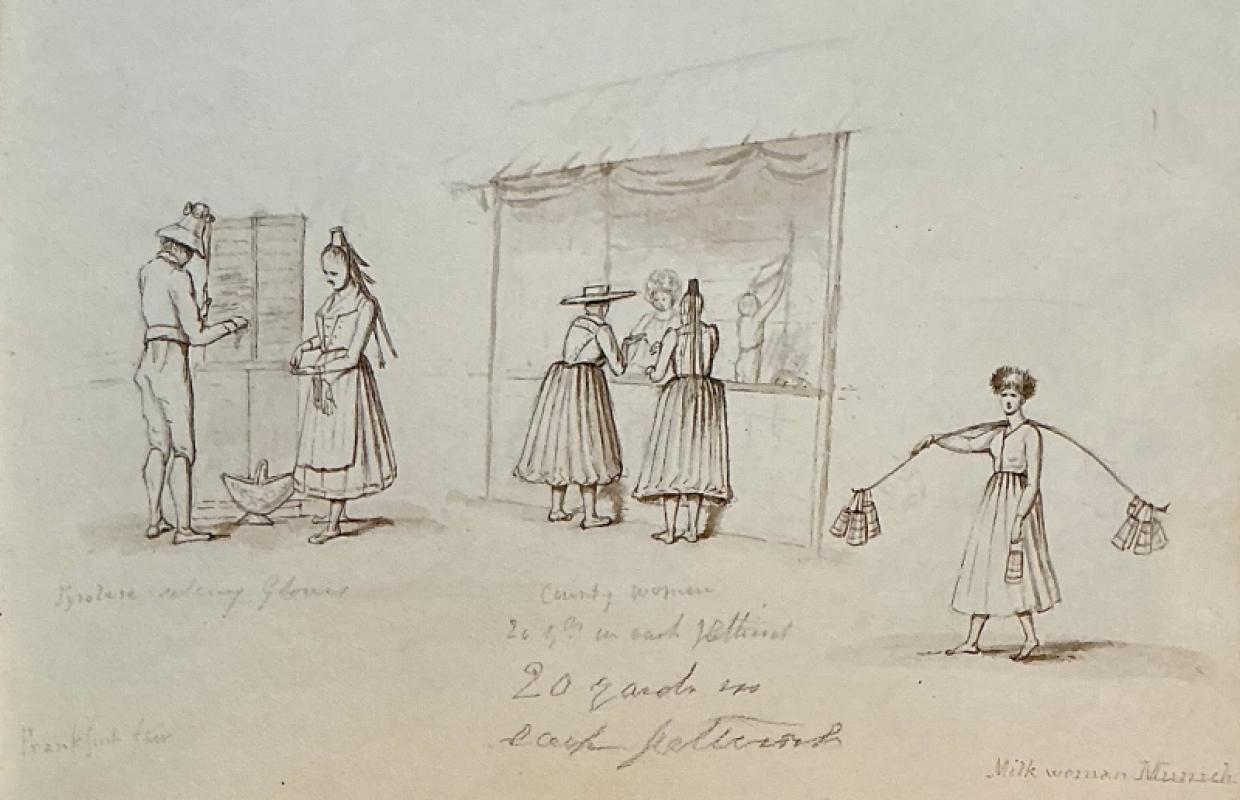 Tyrolese selling Gloves
County women
20 yds in each petticoat
20 yards in
each petticoat
Frankfurt fair
Milk woman Munich